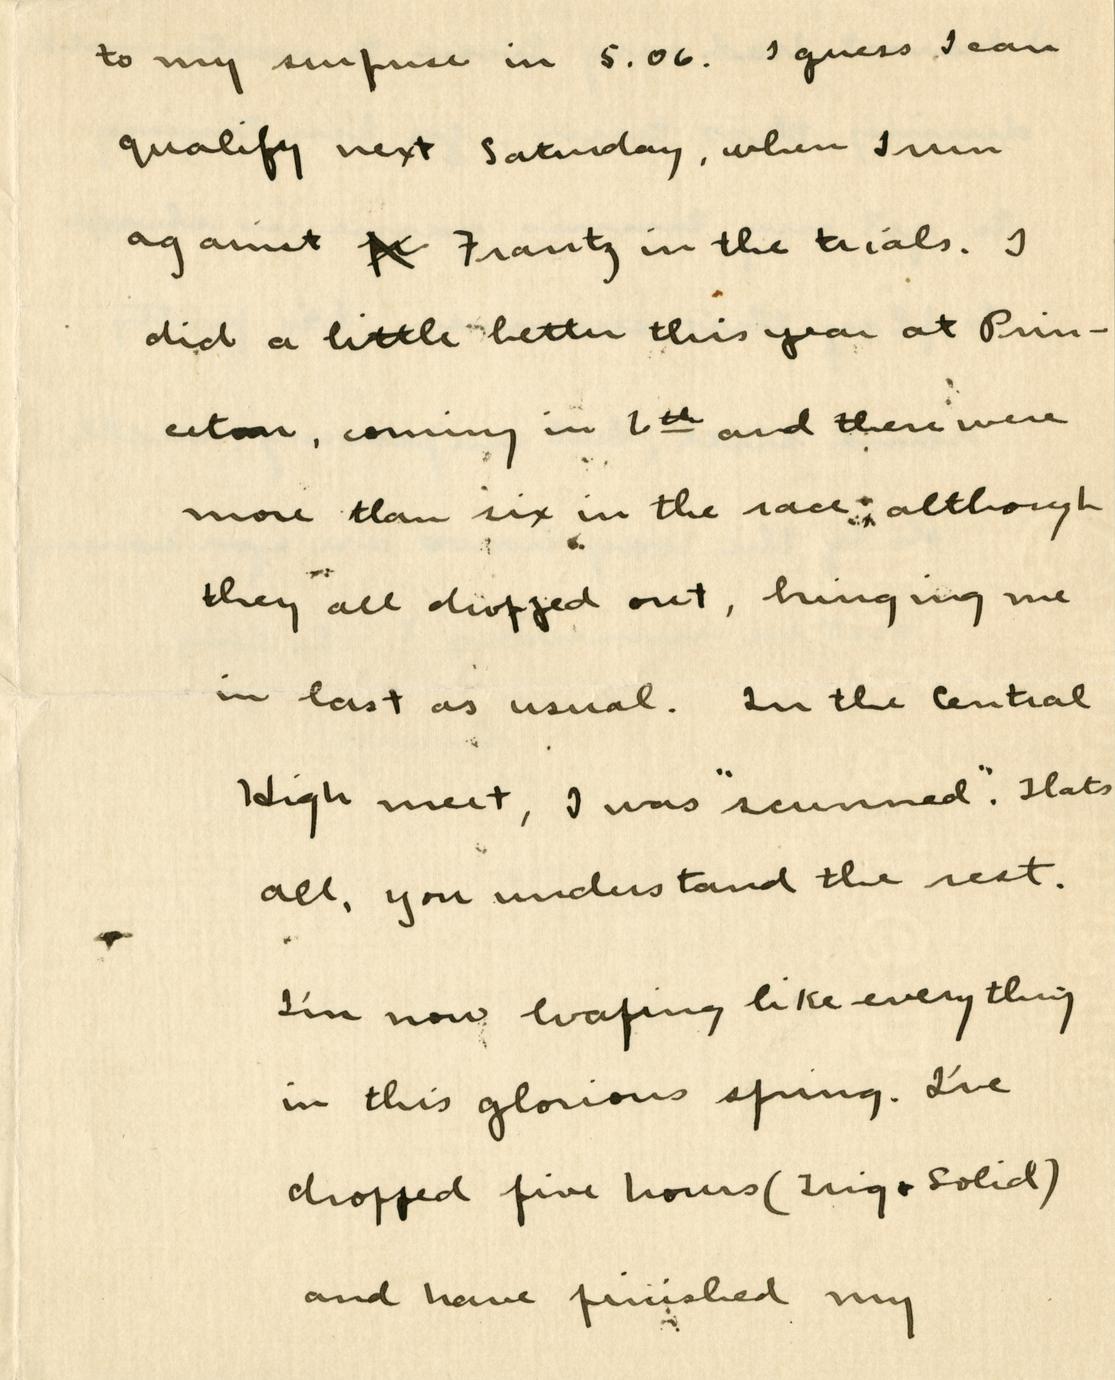 to my surprise in 5.06. I guess I can
qualify next Saturday, when I run
against Frantz in the trials. I
did a little better this year at Prin-
ceton, coming in 6th and there were
more than six in the race; although
they all dropped out, bringing me
in last as usual. In the Central
High meet, I was "scunned". Thats
all, you understand the rest.
I'm now loafing like everything
in this glorious spring. I've
dropped five hours (Trig + Solid)
and have finished my